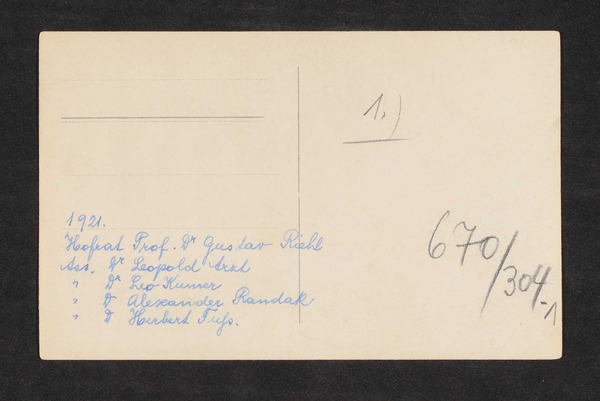 1.)
1921.
Hofrat Prof. Dr Gustav Riehl
Ass. Dr Leopold Arzt
" Dr Leo Kumer
" Dr Alexander Randak
" Dr Herbert Fuhs.
670/304-1